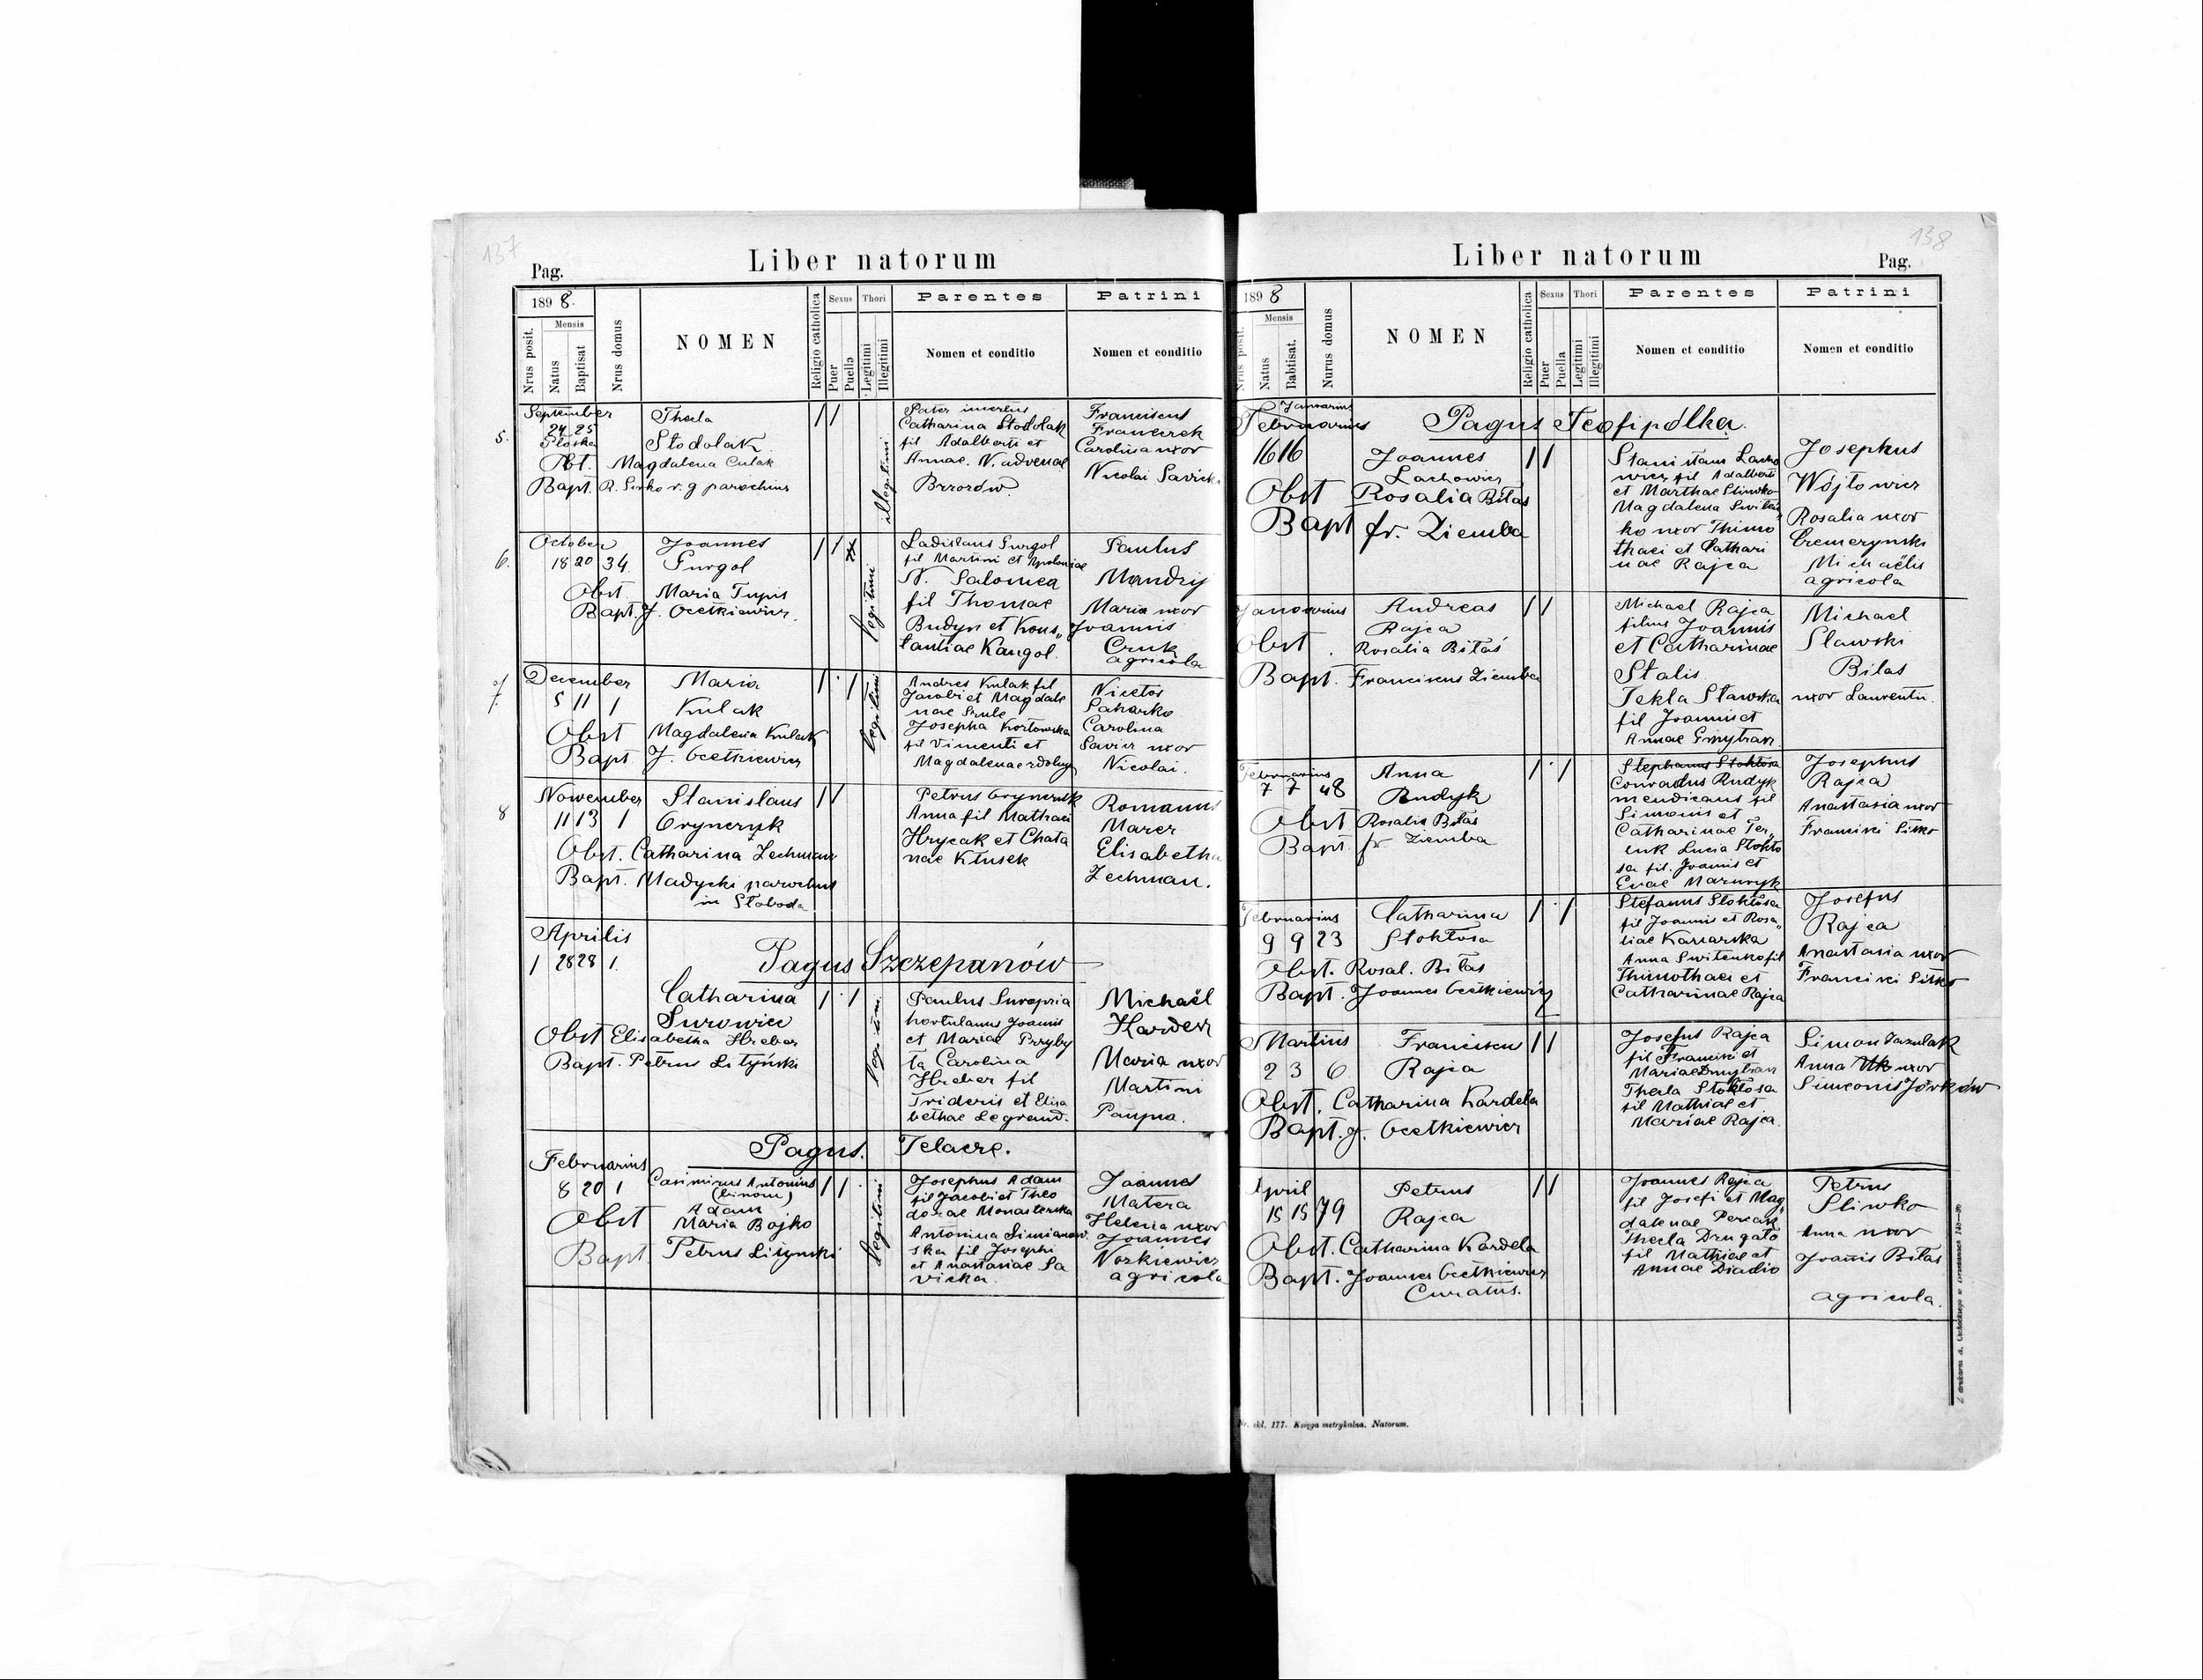 137
Liber natorum
Pag.
1898.
Nrus posit.
Mensis
Natus
Baptisat
Nrus domus
NOMEN
Religio catholica
Sexus
Puer
Puella
Thori
Legitimi
Illegitimi
Parentes
Nomen et conditio
Patrini
Nomen et conditio
5.
September
24 25
Thecla
Stodolak
Obt. Magdalena Culak
Bapt. R. Sirko r. g parochius
illegitimi
Pater incertus
Catharina Stodolak
fil Adalberti et
Annae N. advenae
Brzozów.
Franciscus
Franczek
Carolina uxor
Nicolai Savicki
6.
October
18 20 34.
Joannes
Gurgol
Obst. Maria Tupis
Bapt. J. Ocetkiewicz.
legitimi
Ladislaus Gurgol
fil Martini et Apoloniae
N. Salomea
fil Thomae
Budyn et Kons„
tantiae Kangol.
Paulus
Mandzij
Maria uxor
Joannis
Cruk
agricola
7.
December
5 11 1
Maria
Kulak
Obst Magdalena Kulak
Bapt J. Ocetkiewicz
legitimi
Andres Kulak fil
Jacobi et Magdale
nae Szule
Josepha Kozlowska
fil Vincenti et
Magdalenae
Nicetos
Saharko
Carolina
Savicz uxor
Nicolai.
8
November
11 13 1
Stanislaus
Oryneryk
Obst. Catharina Zechman
Bapt. Madycki parochus
in Sloboda
Petrus Oryneryk
Anna fil Mathaei
Hrycak et Chata
nae Klusek
Romanus
Marer
Elisabetha
Zechman.
Aprilis
1 28 28 1.
Pagus Szczepanów
Catharina
Surowiec
Obst Elisabetha Hreber
Bapt. Petrus Lityński
legitimi
Paulus
hortulanus Joannis
et Mariae Przyby
ła Carolina
Hreber fil
Frideris et Elisa
bethae Legrand.
Michaël
Harderr
Maria uxor
Martini
Paupna.
Pagus. Telacze.
Februarius
8 20 1
Casimirus Antonius
(binom)
Adam
Obst Maria Bojko
Bapt. Petrus Lityński
legitimi
Josephus Adam
fil Jacobi et Theo
dozae Monasterska
Antonina Simianow
ska fil Josephi
et Anastasiae Sa
vicka.
Joannes
Matera
Helena uxor
Joannes
Noskiewicz
agricola
138
Liber natorum
Pag.
1898
Nrus posit.
Mensis
Natus
Babtisat.
Nurus domus
NOMEN
Religio catholica
Sexus
Puer
Puella
Thori
Legitimi
Illegitimi
Parentes
Nomen et conditio
Patrini
Nomen et conditio
Januarius
Februarius
Pagus Teofipólka.
16 16
Joannes
Lachowicz
Obst Rosalia Bilas
Bapt fr. Ziemba
Stanislaus Lacho
wicz fil Adalberti
et Marthae Sliwko
Magdalena Switen„
ko uxor Thimo
thaei et Cathari
nae Rajca
Josephus
Wójtowicz
Rosalia uxor
Michaëlis
agricola
Januarius
Andreas
Rajca
Obst. Rosalia Bilaś
Bapt. Franciscus Ziemba
Michael Rajca
filius Joannis
et Catharinae
Stalis
Tekla Slawska
fil Joannis et
Annae Gmytran
Michael
Slawski
Bilas
uxor Laurentii.
Februarius
7 7 48
Anna
Rudyk
Obst Rosalia Bilas
Bapt. fr Ziemba
Stephanus Stoktosa
Conradus Rudyk
mendicans fil
Simonis et
Catharinae Ter„
luk Lucia Stokto
sa fil. Joannis et
Evae Mazuryk
Josephus
Rajca
Anastasia uxor
Francisci Sitko
Februarius
9 9 23
Catharina
Stoktosa
Obst. Rosal. Bilas
Bapt. Joannes Ocetkiewicz
Stefanus Stoktosa
fil Joannis et Rosa„
liae Kaszarska
Anna Switenko fil
Thimothaei et
Catharinae Rajca
Josefus
Rajca
Anastasia uxor
Francisci Sitko
Martius
2 3 6
Franciscus
Rajca
Obst. Catharina Kardela
Bapt. J. Ocetkiewicz
Josefus Rajca
fil Francisci et
Mariae Dmytran
Thecla Stoktosa
fil Mathiae et
Mariae Rajca.
Simon Jazulak
Anna uxor
Simeonis Jórków
April
15 15 79
Petrus
Rajca
Obst. Catharina Kardela
Bapt. Joannes Ocetkiewicz
Curatus.
Joannes Rajca
fil Josefi et Mag„
dalenae Percak
Thecla Drugalo
fil Mathiae et
Annae Diadio
Petrus
Sliwko
Anna uxor
Joanis Bilas
agricola.
Nr. skl. 177. Księga metrykalna. Natorum.